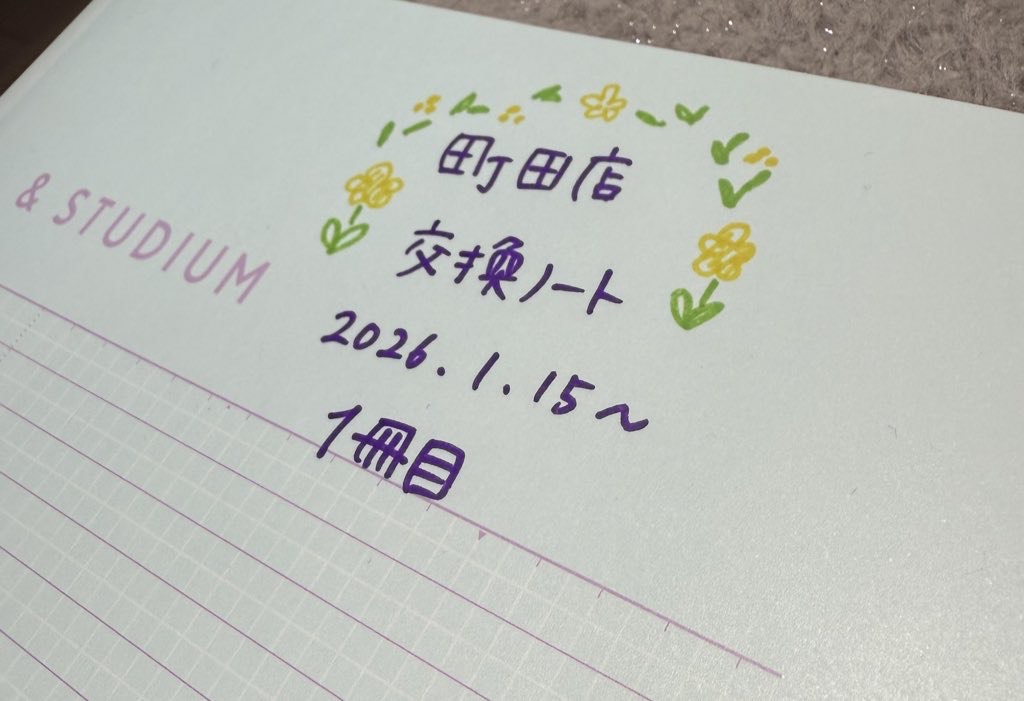 & STUDIUM
町田店
交換ノート
2026.1.15~
1冊目